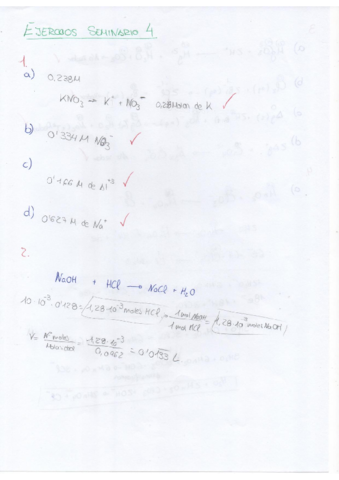 EJERCICIOS SEMINARIO 4
1.
a) 0,278M
KNO₃ → K⁺ + NO₃⁻ 0,278 molar de K
b) 0'334 M NO₃⁻
c) 0'166 M de Al⁺³
d) 0'627 M de Na⁺
2.
NaOH + HCl → NaCl + H₂O
10·10⁻³·0'128 = 1,28·10⁻³ moles HCl · 1 mol NaOH / 1 mol HCl = 1,28·10⁻³ mol NaOH
V = Nº moles / Molaridad = 1,28·10⁻³ / 0,0962 = 0'0133 L